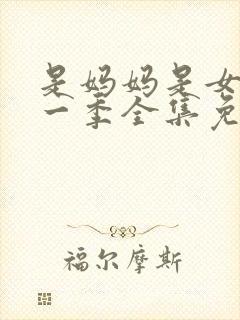 是妈妈是女
一季全集免
福尔摩斯